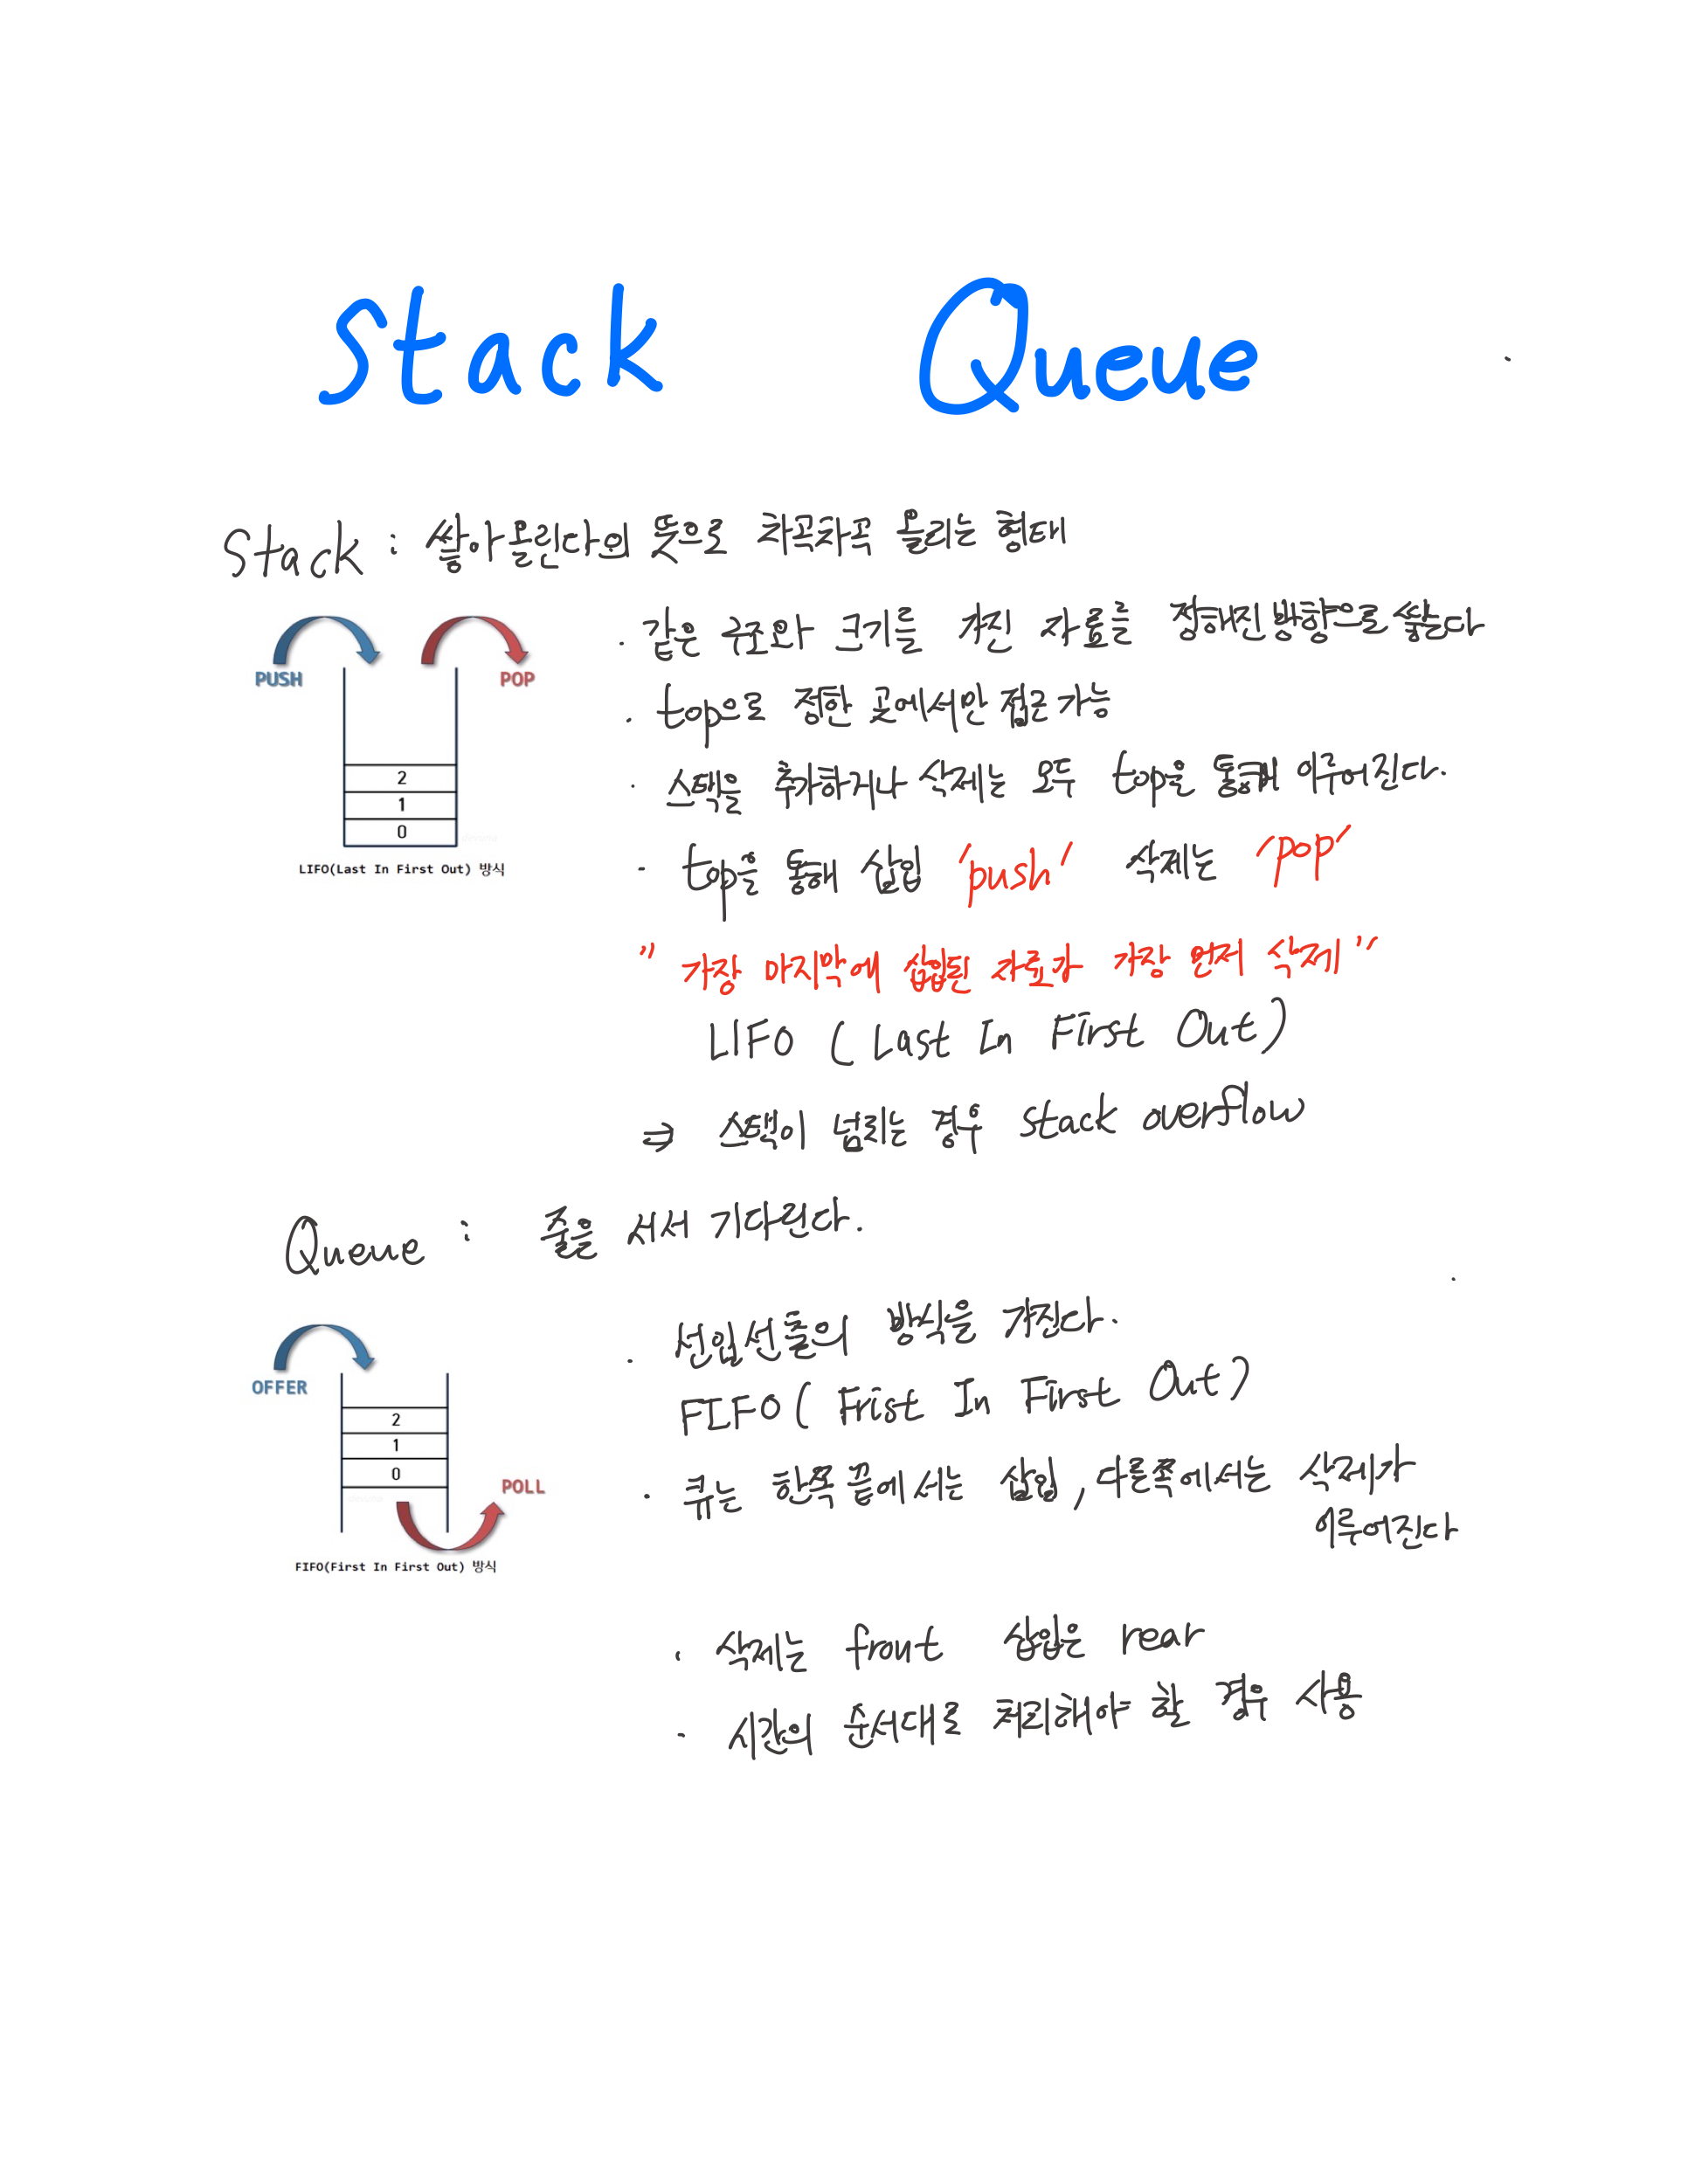 Stack Queue
Stack : 쌓아올린다의 뜻으로 차곡차곡 올리는 형태
PUSH
POP
2
1
0
LIFO(Last In First Out) 방식
· 같은 구조와 크기를 가진 자료를 정해진 방향으로 쌓는다
· top으로 정한 곳에서만 접근 가능
· 스택을 추가하거나 삭제는 모두 top을 통해 이루어진다.
· top을 통해 삽입 'push' 삭제는 'pop'
" 가장 마지막에 삽입된 자료가 가장 먼저 삭제 "
LIFO ( Last In First Out )
⇒ 스택이 넘치는 경우 stack overflow
Queue : 줄을 서서 기다린다.
OFFER
2
1
0
POLL
FIFO(First In First Out) 방식
· 선입선출의 방식을 가진다.
FIFO ( Frist In First Out )
· 큐는 한쪽 끝에서는 삽입 , 다른쪽에서는 삭제가
이루어진다
· 삭제는 front 삽입은 rear
· 시간의 순서대로 처리해야 할 경우 사용